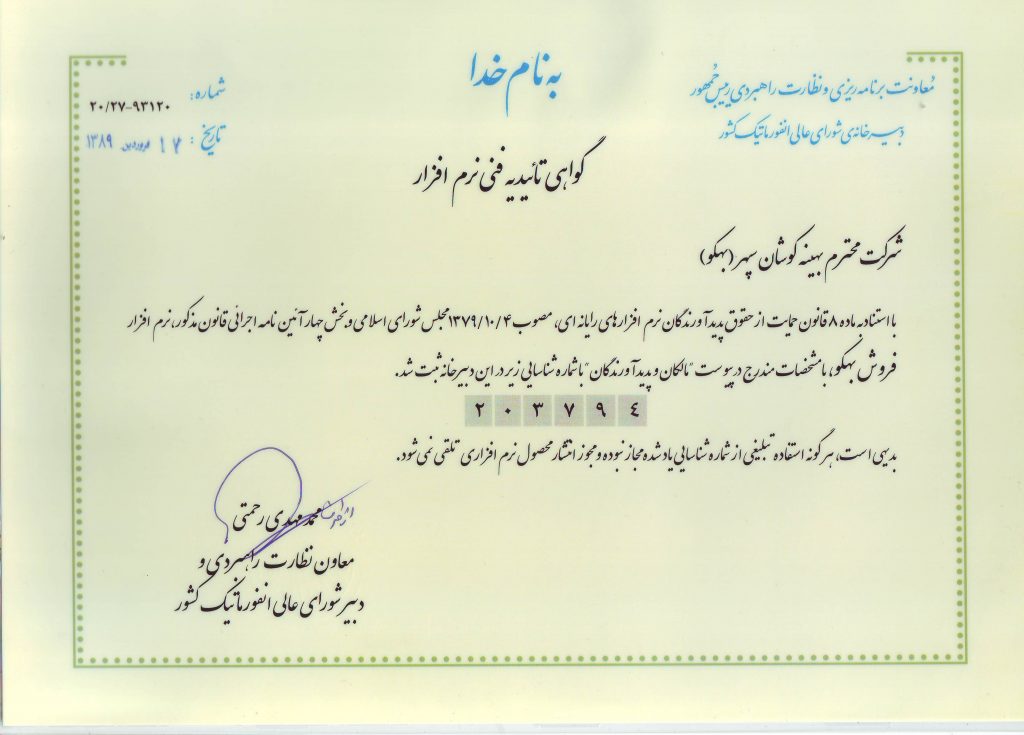 به نام خدا
معاونت برنامه ریزی و نظارت راهبردی رییس جمهور
دبیرخانه‌ی شورای عالی انفورماتیک کشور
شماره: ۲۰/۲۷-۹۳۱۲۰
تاریخ: ۱۷ فروردین ۱۳۸۹
گواهی تائیدیه فنی نرم افزار
شرکت محترم بهینه کوشان سپهر (بهکو)
با استناد به ماده ۸ قانون حمایت از حقوق پدیدآورندگان نرم افزارهای رایانه ای، مصوب ۱۳۷۹/۱۰/۴ مجلس شورای اسلامی و بخش چهار آئین نامه اجرائی قانون مذکور، نرم افزار
فروش بهکو، با مشخصات مندرج در پیوست "مالکان و پدیدآورندگان" با شماره شناسایی زیر در این دبیرخانه ثبت شد.
۲۰۳۷۹٤
بدیهی است، هرگونه استفاده تبلیغی از شماره شناسایی یاد شده مجاز نبوده و مجوز انتشار محصول نرم افزاری تلقی نمی شود.
محمد مهدی رحمتی
معاون نظارت راهبردی و
دبیر شورای عالی انفورماتیک کشور